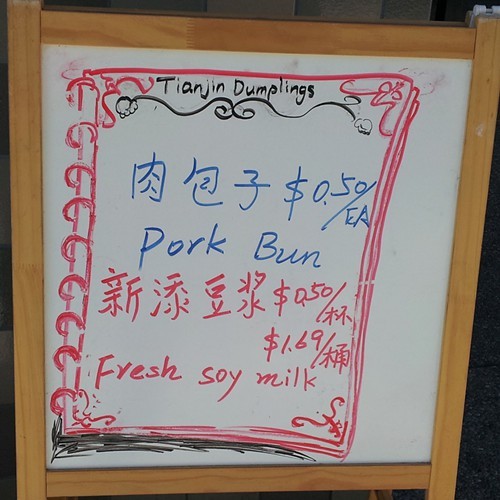 Tianjin Dumplings
肉包子 $0.50/EA
Pork Bun
新添豆浆 $0.50/杯
$1.69/桶
Fresh soy milk